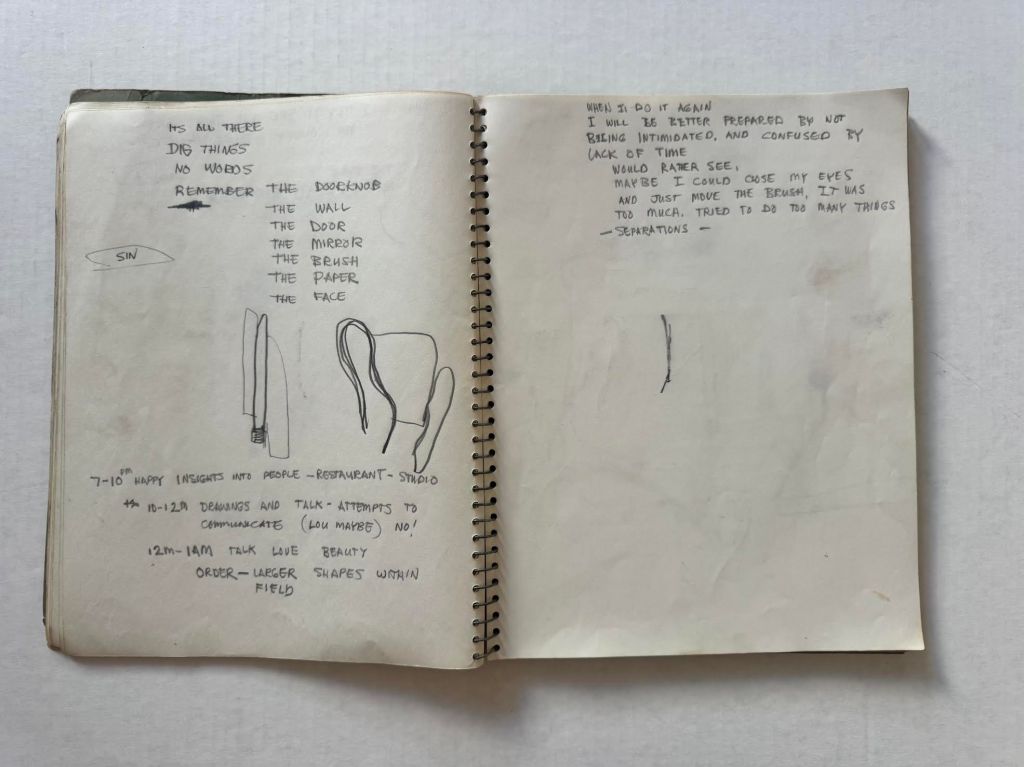 ITS ALL THERE
DIG THINGS
NO WORDS
REMEMBER THE DOORKNOB
THE WALL
THE DOOR
THE MIRROR
SIN
THE BRUSH
THE PAPER
THE FACE
7-10 PM HAPPY INSIGHTS INTO PEOPLE - RESTAURANT - STUDIO
10-12M DRAWINGS AND TALK - ATTEMPTS TO
COMMUNICATE (LOU MAYBE) NO!
12M-1AM TALK LOVE BEAUTY
ORDER - LARGER SHAPES WITHIN
FIELD
WHEN I DO IT AGAIN
I WILL BE BETTER PREPARED BY NOT
BEING INTIMIDATED, AND CONFUSED BY
LACK OF TIME
WOULD RATHER SEE,
MAYBE I COULD CLOSE MY EYES
AND JUST MOVE THE BRUSH, IT WAS
TOO MUCH. TRIED TO DO TOO MANY THINGS
- SEPARATIONS -